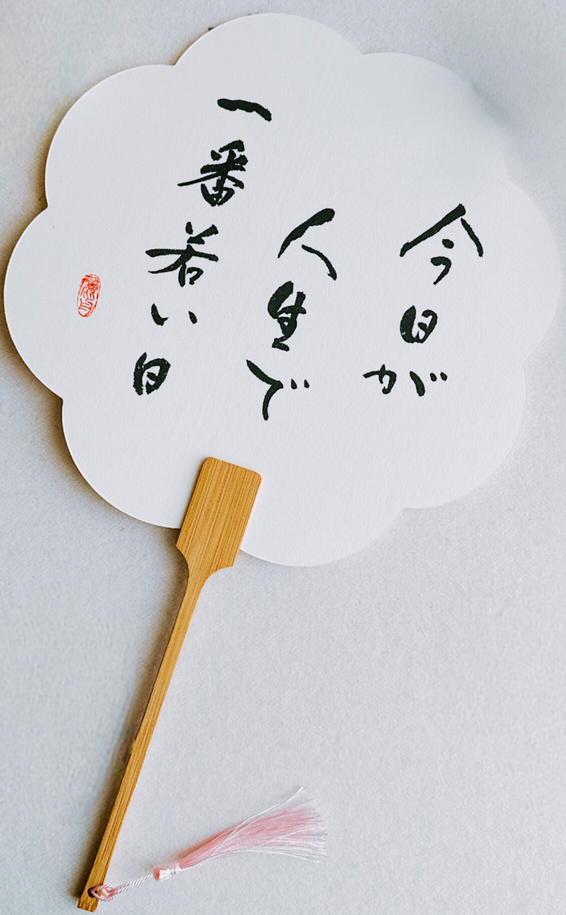 今日が
人生で
一番若い日